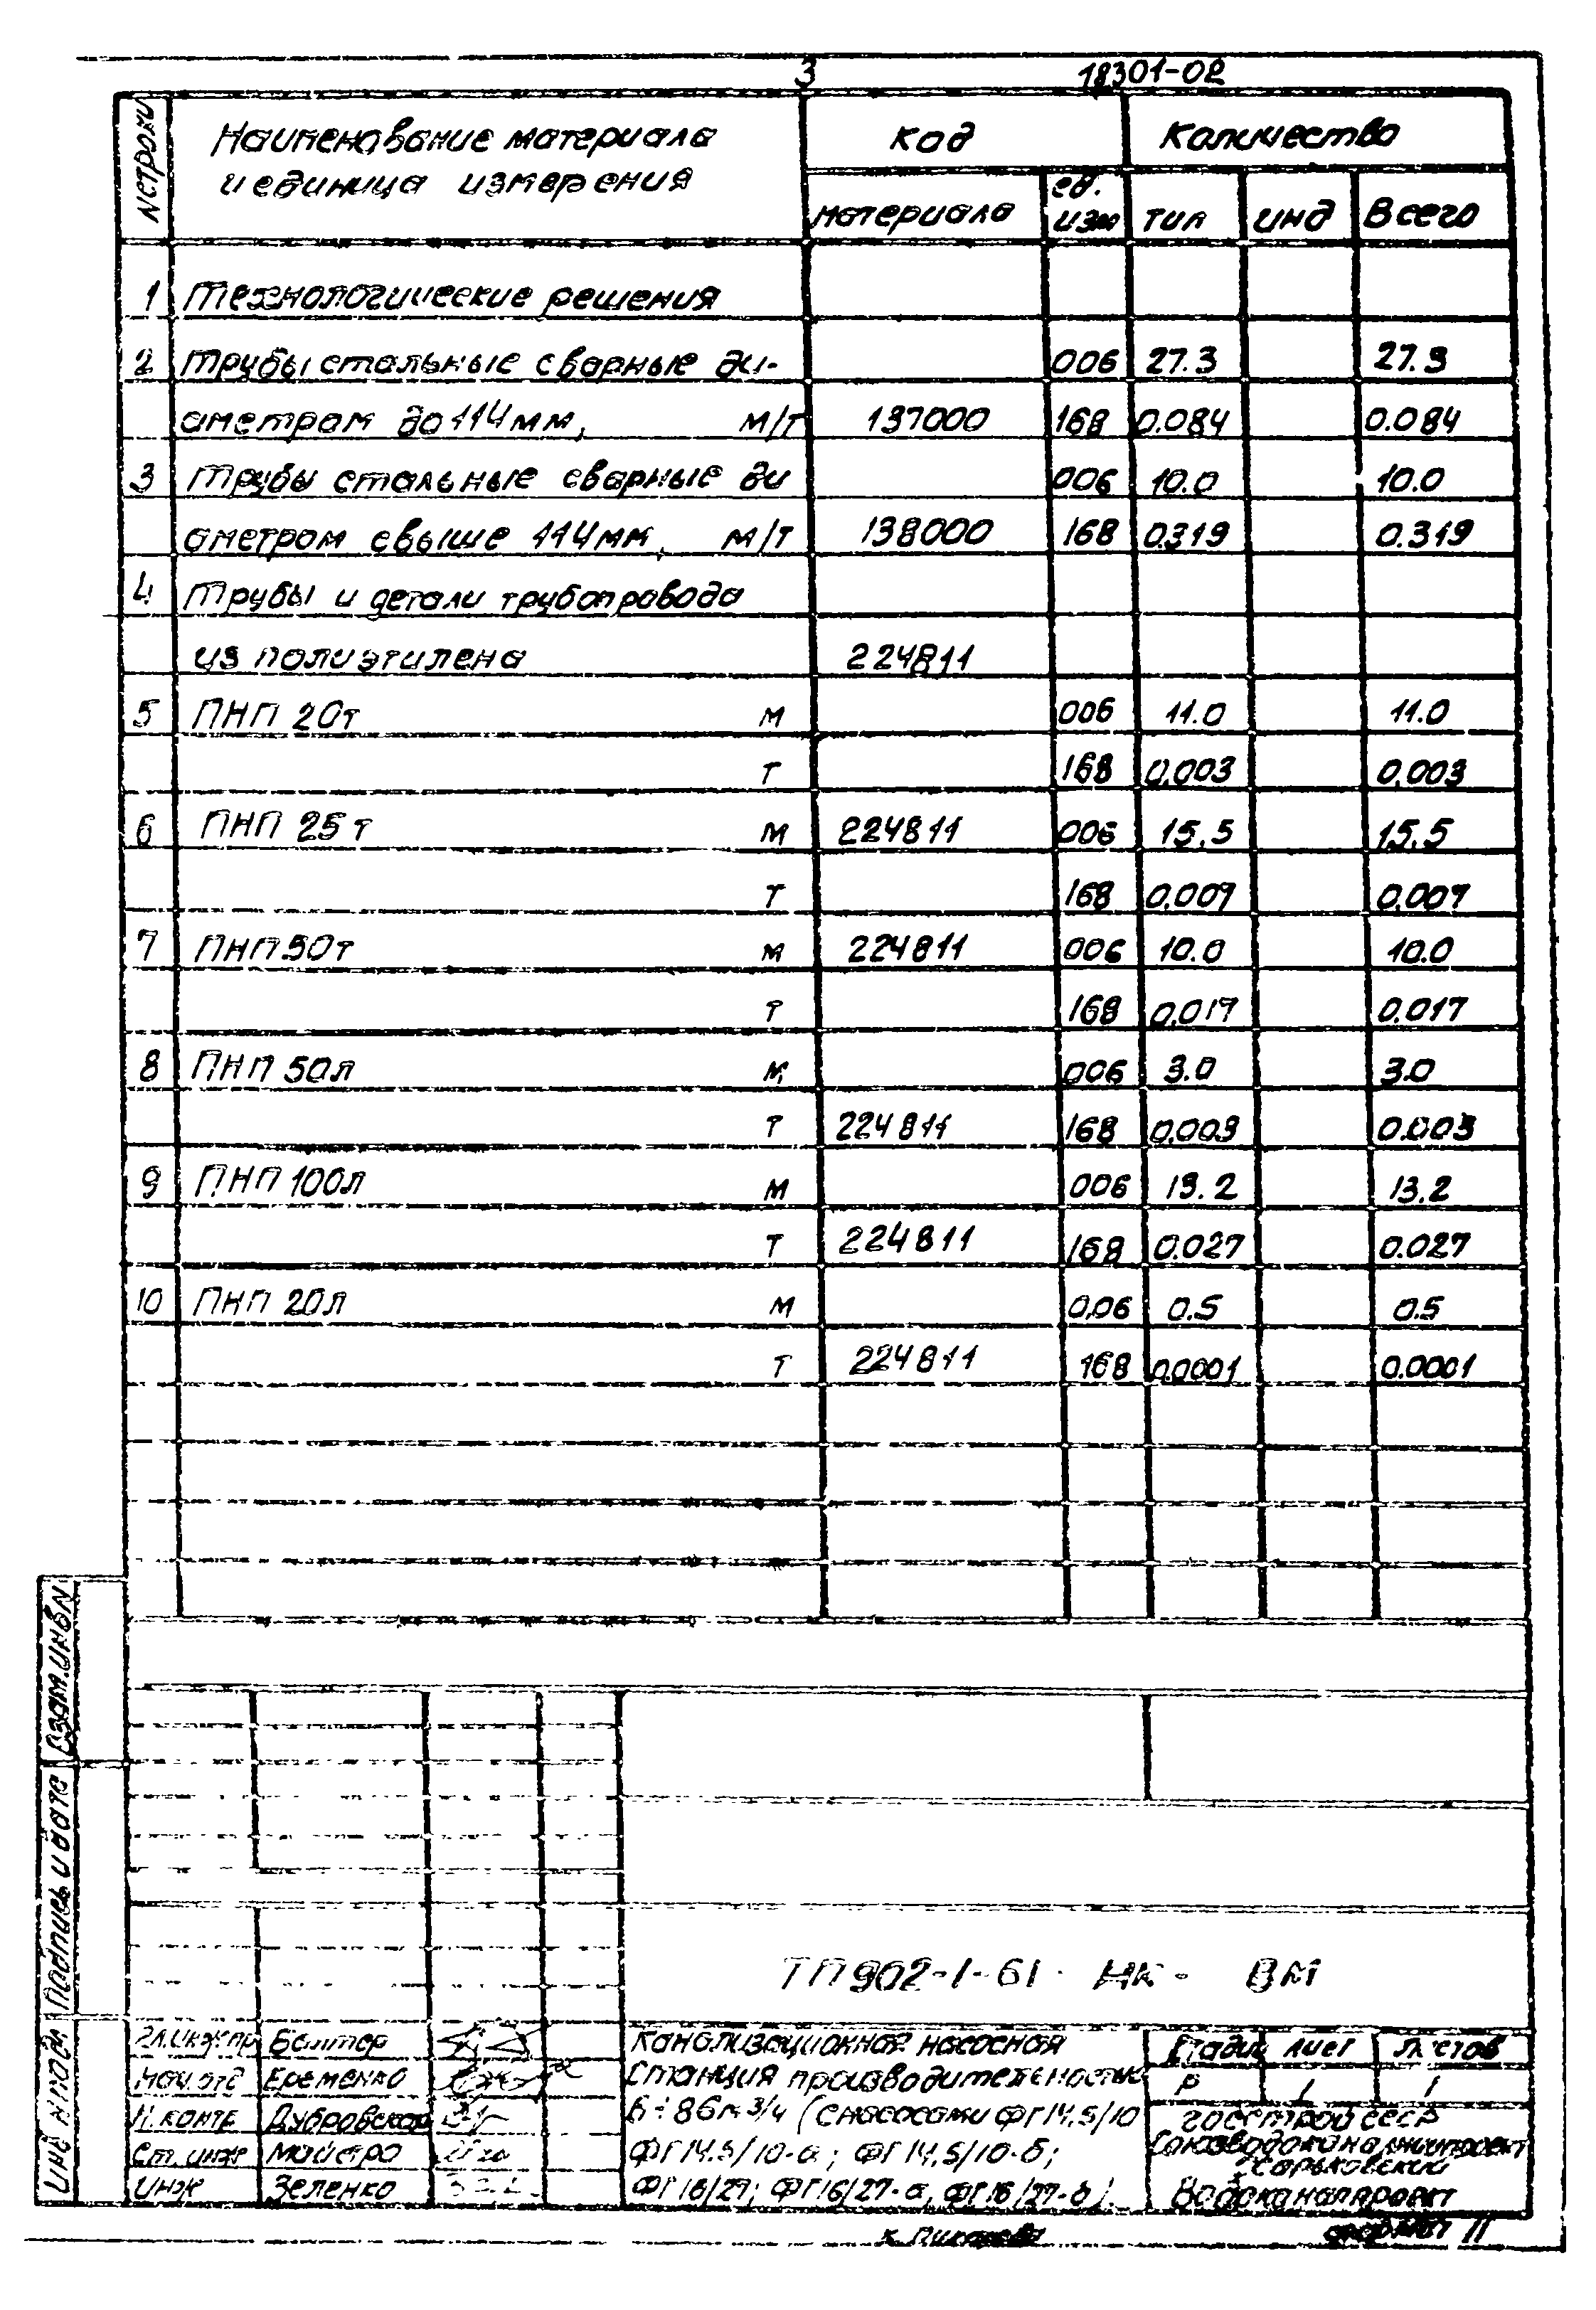 3 18301-02
N строки Наименование материала Код Количество
и единица измерения
материала ед. изм тип инд Всего
1 Технологические решения
2 Трубы стальные сварные ди- 006 27.3 27.3
аметром до 114мм, м/т 137000 168 0.084 0.084
3 Трубы стальные сварные ди 006 10.0 10.0
аметром свыше 114мм, м/т 138000 168 0.319 0.319
4 Трубы и детали трубопровода
из полиэтилена 224811
5 ПНП 20т м 006 11.0 11.0
т 168 0.003 0.003
6 ПНП 25т м 224811 006 15.5 15.5
т 168 0.007 0.007
7 ПНП 50т м 224811 006 10.0 10.0
т 168 0.017 0.017
8 ПНП 50л м 006 3.0 3.0
т 224811 168 0.003 0.003
9 ПНП 100л м 006 13.2 13.2
т 224811 168 0.027 0.027
10 ПНП 20л м 006 0.5 0.5
т 224811 168 0.0001 0.0001
Взам.инвN
Подпись и дата
Инв N подл
ТП902-1-61· НК- ВМ
Гл.инж.пр
Нач.отд Еременко
Н.конт Дубровская
Ст.инж Майстро
Инж Зеленко
Канализационная насосная
Станция производительностью
6÷86м3/ч (с насосами ФГ14,5/10
ФГ14.5/10-а; ФГ14,5/10-б;
ФГ16/27; ФГ16/27-а, ФГ16/27-б).
Стадия лист листов
Р 1 1
Госстрой СССР
Харьковский
Водоканалпроект
формат 11